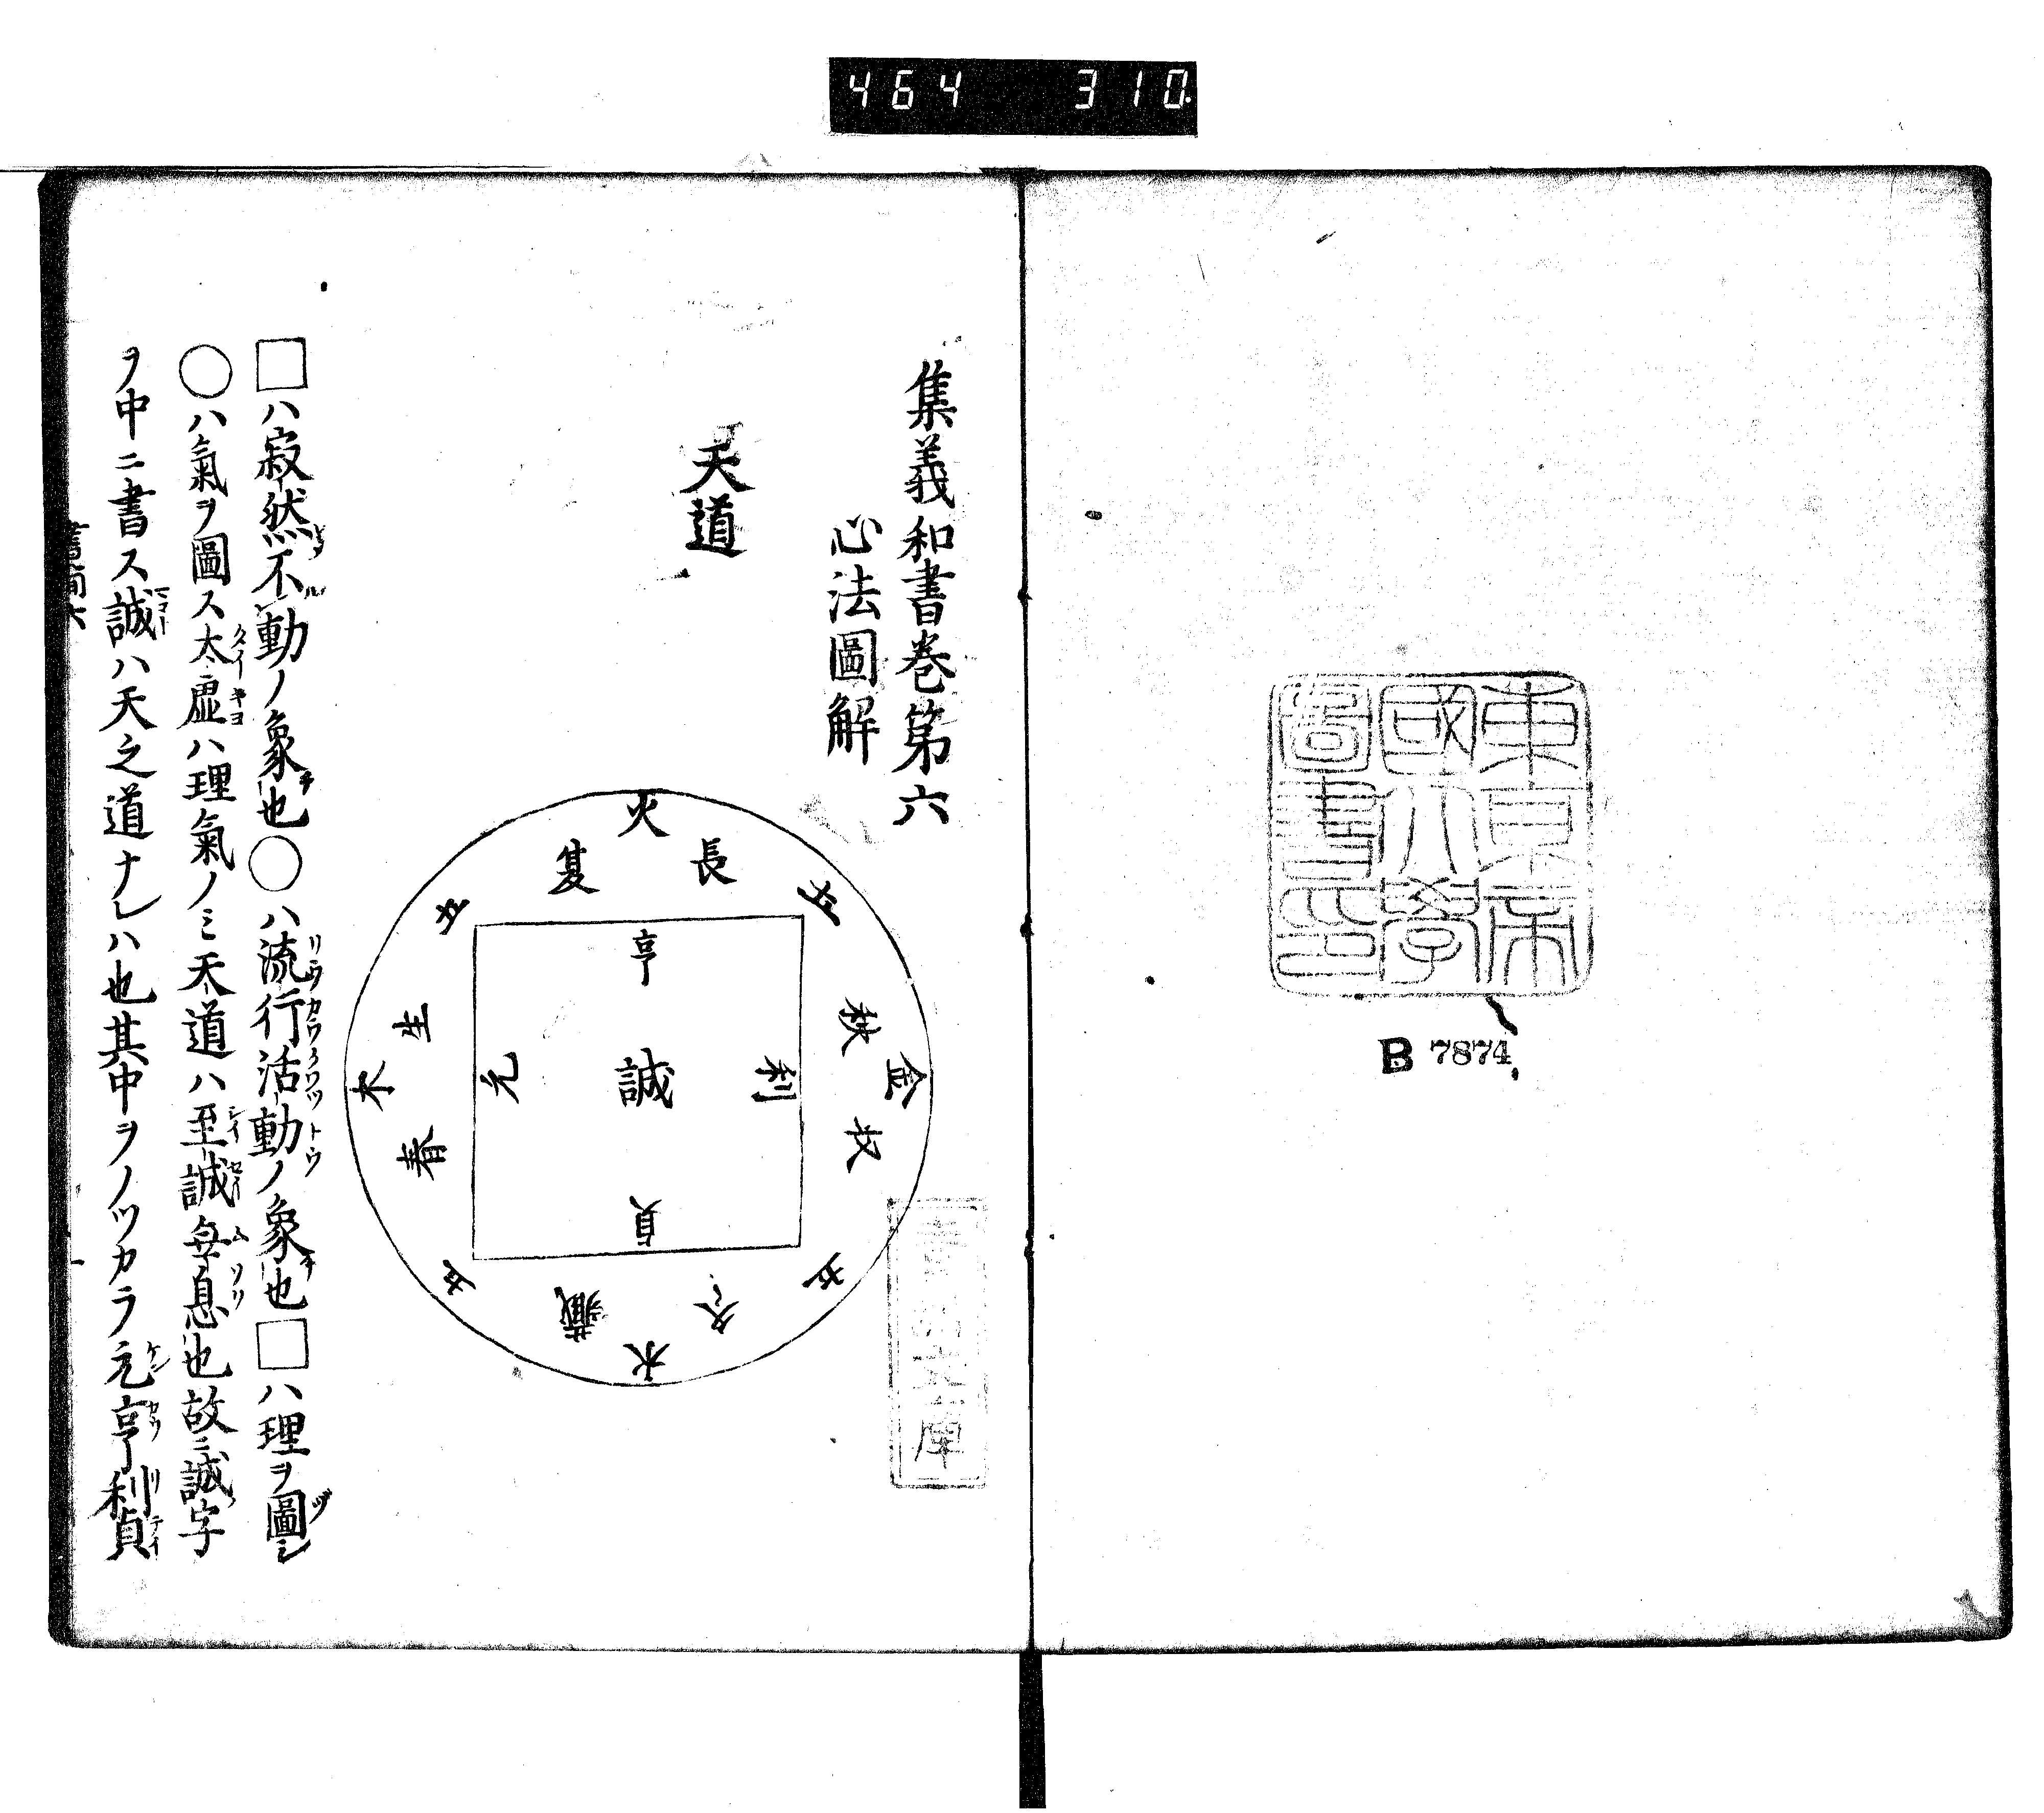 464 310
東京帝
國大學
圖書印
B 7874
集義和書卷第六
心法圖解
天道
火
長
夏
土
土
亨
秋
金
收
利
生
木
春
元
誠
貞
土
土
藏
冬
水
□ハ寂然不動ノ象也○ハ流行活動ノ象也□ハ理ヲ圖シ
○ハ氣ヲ圖ス太虛ハ理氣ノミ天道ハ至誠無息也故ニ誠字
ヲ中ニ書ス誠ハ天之道ナレハ也其中ヲノツカラ元亨利貞
書簡六
一